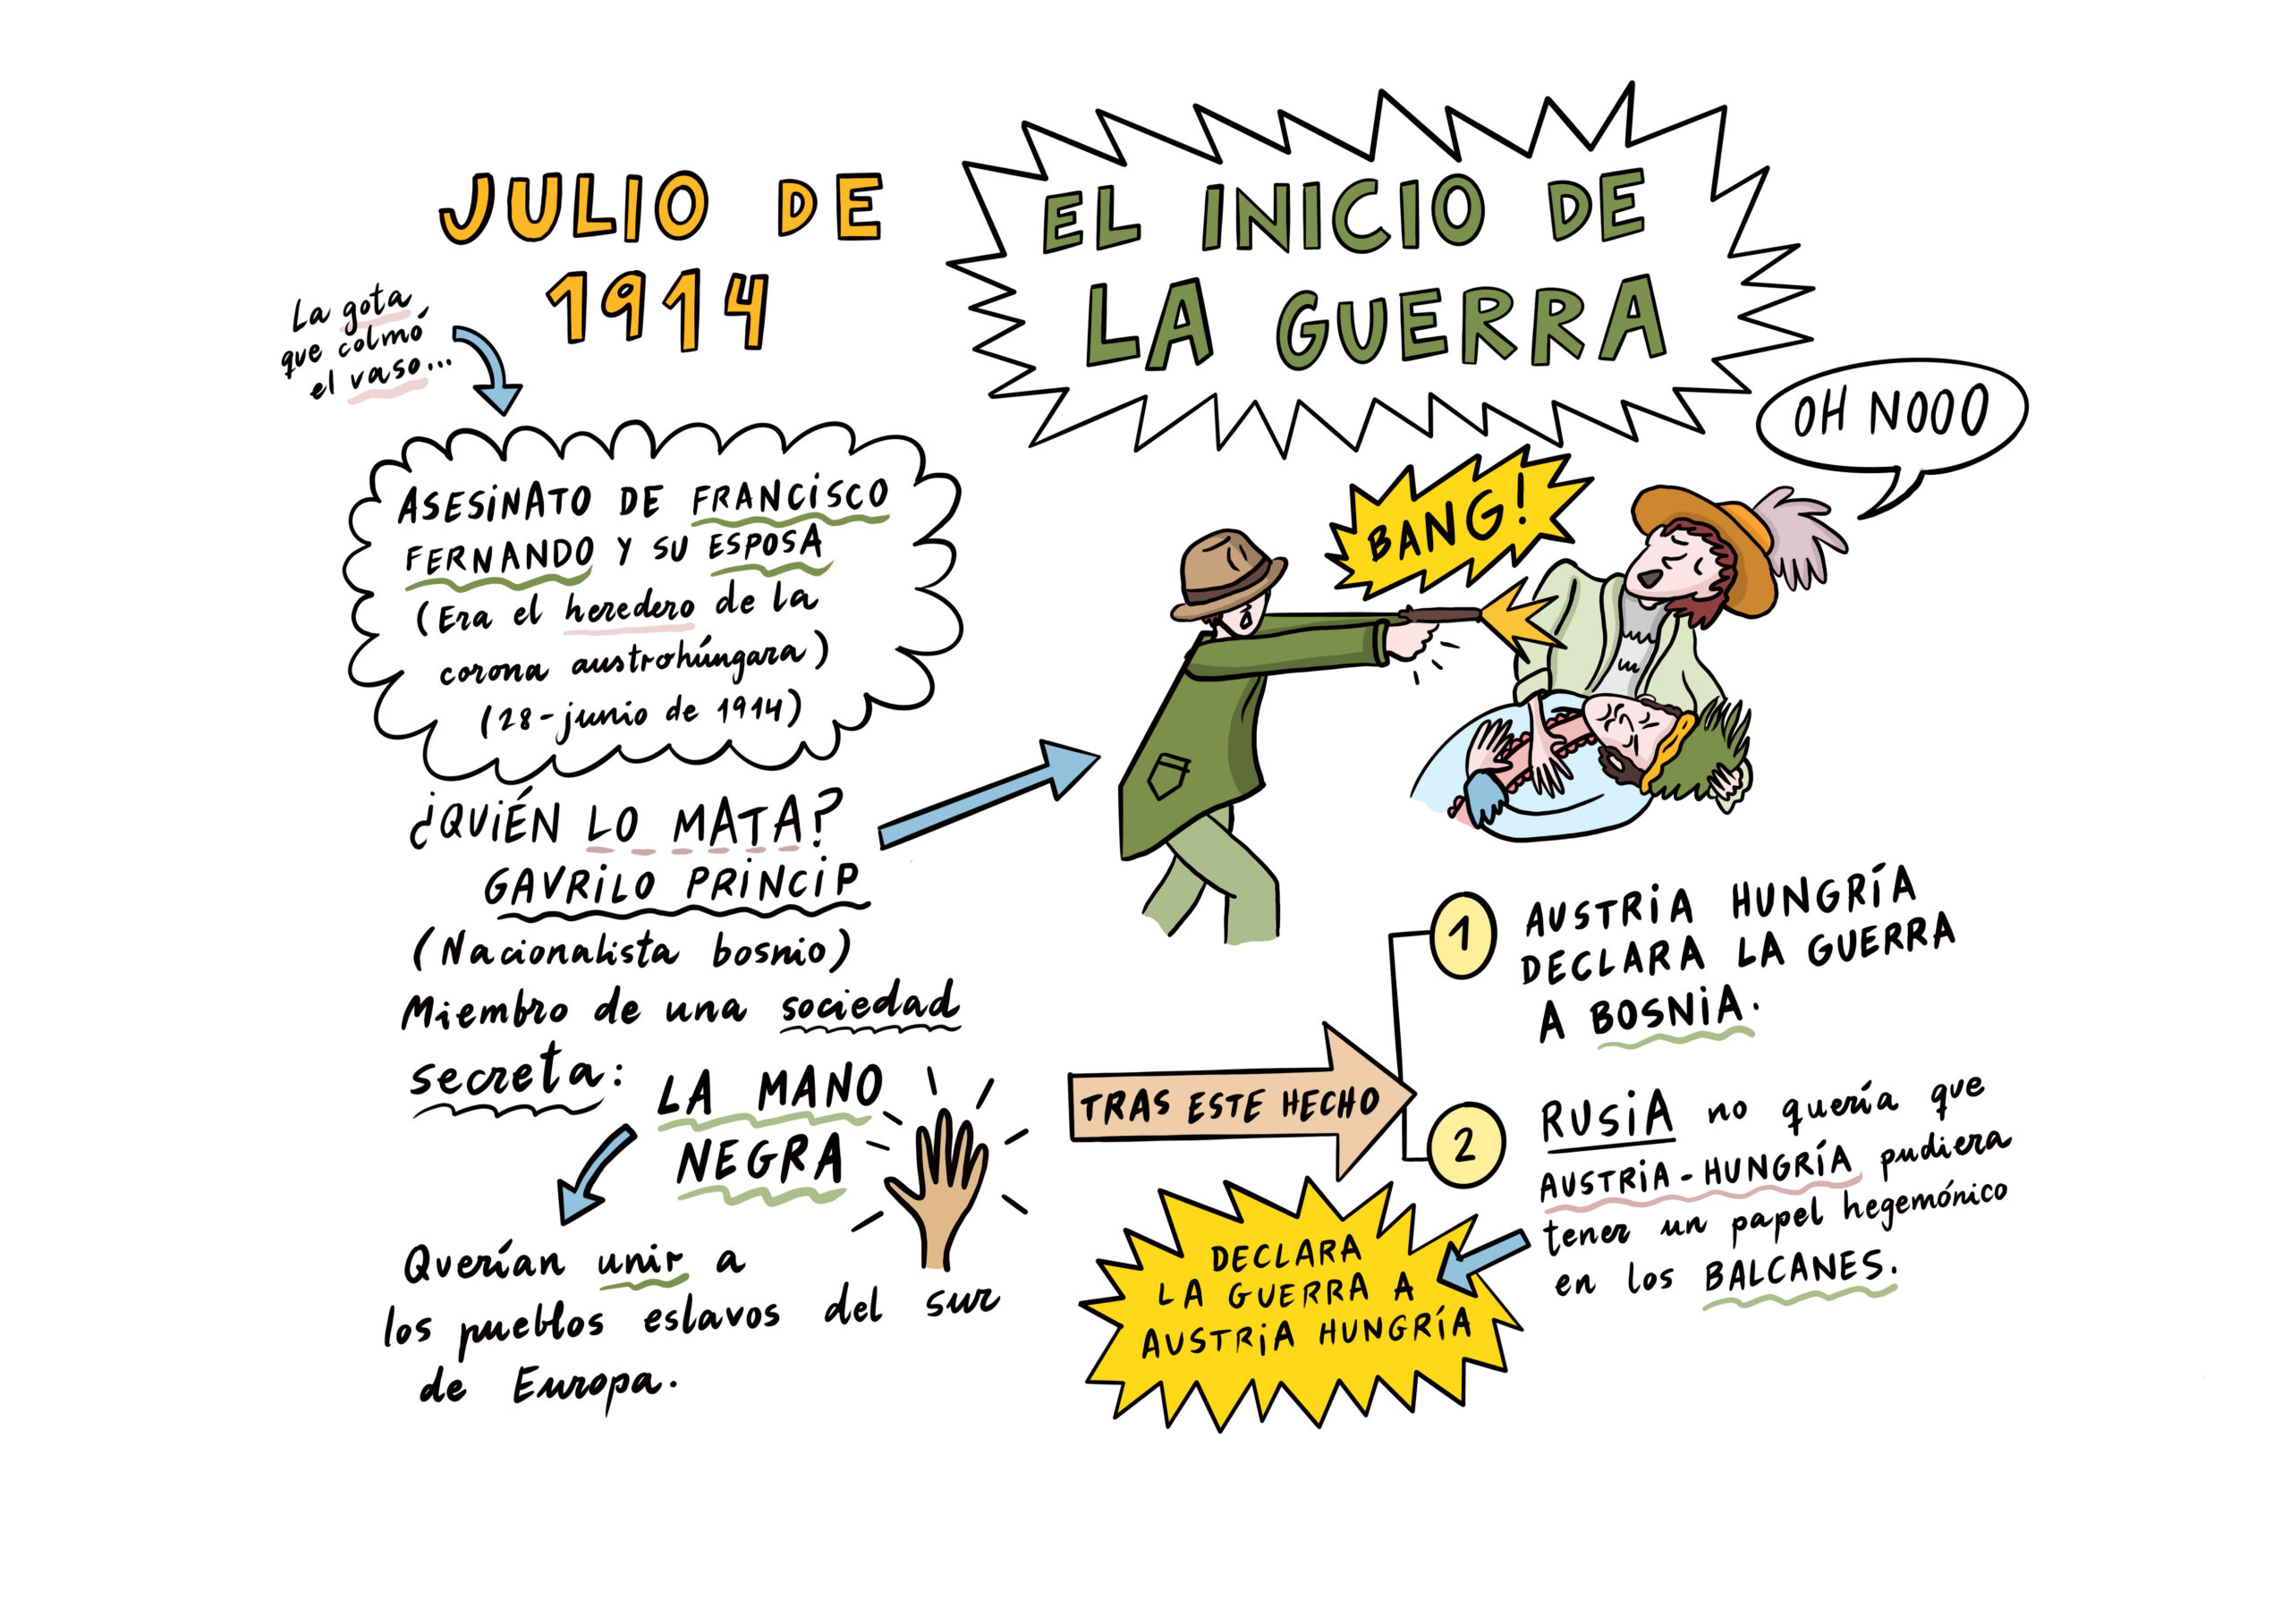 JULIO DE
1914
EL INICIO DE
LA GUERRA
La gota
que colmó
el vaso...
ASESINATO DE FRANCISCO
FERNANDO Y SU ESPOSA
(Era el heredero de la
corona austrohúngara)
(28-junio de 1914)
¿QUIÉN LO MATA?
GAVRILO PRINCIP
(Nacionalista bosnio)
Miembro de una sociedad
secreta:
LA MANO
NEGRA
Querían unir a
los pueblos eslavos del sur
de Europa.
BANG!
OH NOOO
TRAS ESTE HECHO
1
AUSTRIA HUNGRÍA
DECLARA LA GUERRA
A BOSNIA.
2
RUSIA no quería que
AUSTRIA-HUNGRÍA pudiera
tener un papel hegemónico
en los BALCANES.
DECLARA
LA GUERRA A
AUSTRIA HUNGRÍA